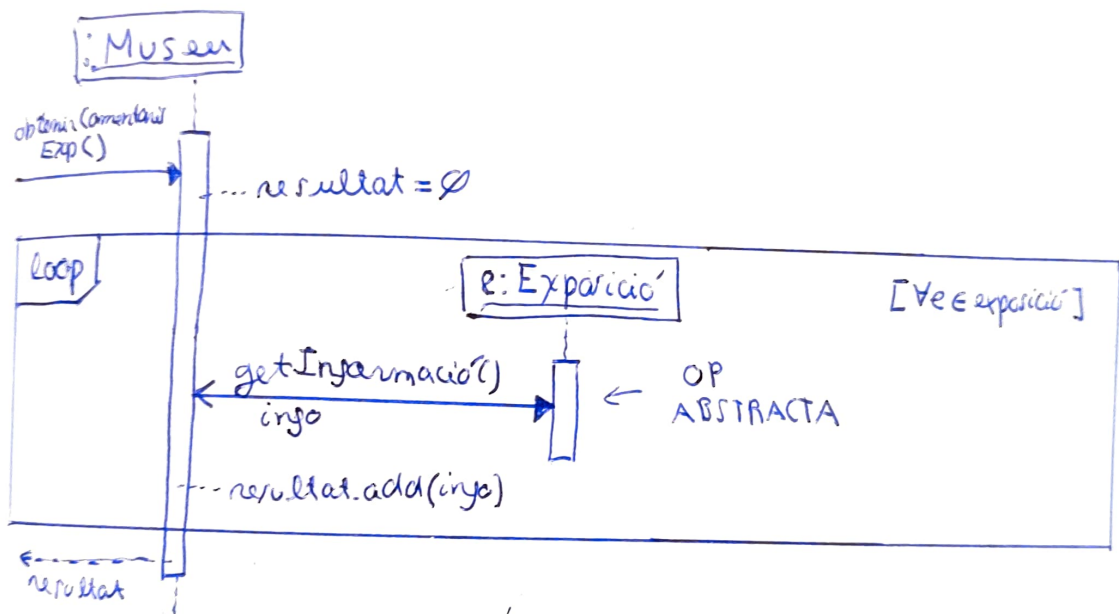 :Museu
obtenirComentaris
Exp()
resultat = Ø
loop
e: Exposició
[∀e ∈ exposició]
getInformació()
info
OP
ABSTRACTA
resultat.add(info)
resultat